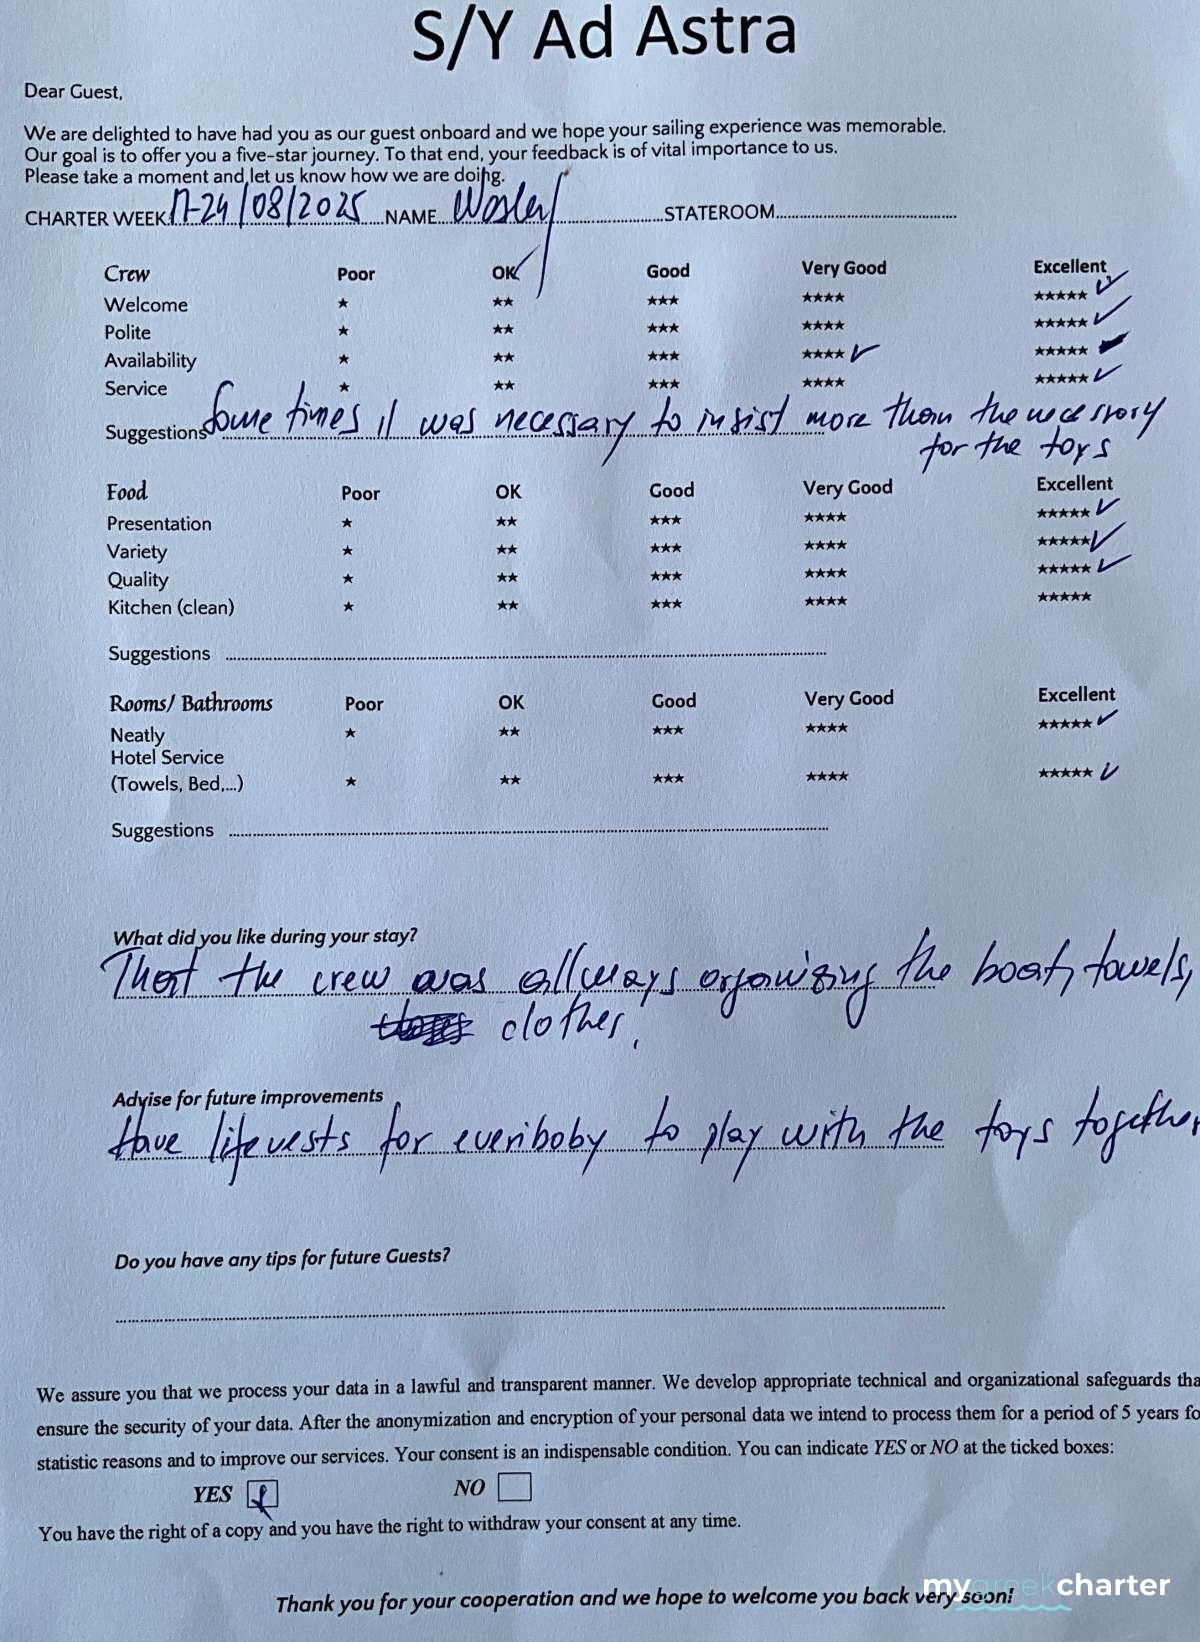 S/Y Ad Astra
Dear Guest,
We are delighted to have had you as our guest onboard and we hope your sailing experience was memorable.
Our goal is to offer you a five-star journey. To that end, your feedback is of vital importance to us.
Please take a moment and let us know how we are doing.
CHARTER WEEK 17-24/08/2025 NAME STATEROOM
Crew Poor OK Good Very Good Excellent
Welcome ★ ★★ ★★★ ★★★★ ★★★★★ ✓
Polite ★ ★★ ★★★ ★★★★ ★★★★★ ✓
Availability ★ ★★ ★★★ ★★★★ ✓ ★★★★★
Service ★ ★★ ★★★ ★★★★ ★★★★★ ✓
Suggestions Some times it was necessary to insist more than the necessory
for the toys
Food Poor OK Good Very Good Excellent
Presentation ★ ★★ ★★★ ★★★★ ★★★★★ ✓
Variety ★ ★★ ★★★ ★★★★ ★★★★★ ✓
Quality ★ ★★ ★★★ ★★★★ ★★★★★ ✓
Kitchen (clean) ★ ★★ ★★★ ★★★★ ★★★★★
Suggestions
Rooms/ Bathrooms Poor OK Good Very Good Excellent
Neatly ★ ★★ ★★★ ★★★★ ★★★★★ ✓
Hotel Service
(Towels, Bed,...) ★ ★★ ★★★ ★★★★ ★★★★★ ✓
Suggestions
What did you like during your stay?
That the crew was allways organizing the boat, towels,
clothes.
Advise for future improvements
Have lifevests for everiboby to play with the toys together
Do you have any tips for future Guests?
We assure you that we process your data in a lawful and transparent manner. We develop appropriate technical and organizational safeguards tha
ensure the security of your data. After the anonymization and encryption of your personal data we intend to process them for a period of 5 years fo
statistic reasons and to improve our services. Your consent is an indispensable condition. You can indicate YES or NO at the ticked boxes:
YES NO
You have the right of a copy and you have the right to withdraw your consent at any time.
Thank you for your cooperation and we hope to welcome you back very soon!
mygreekcharter